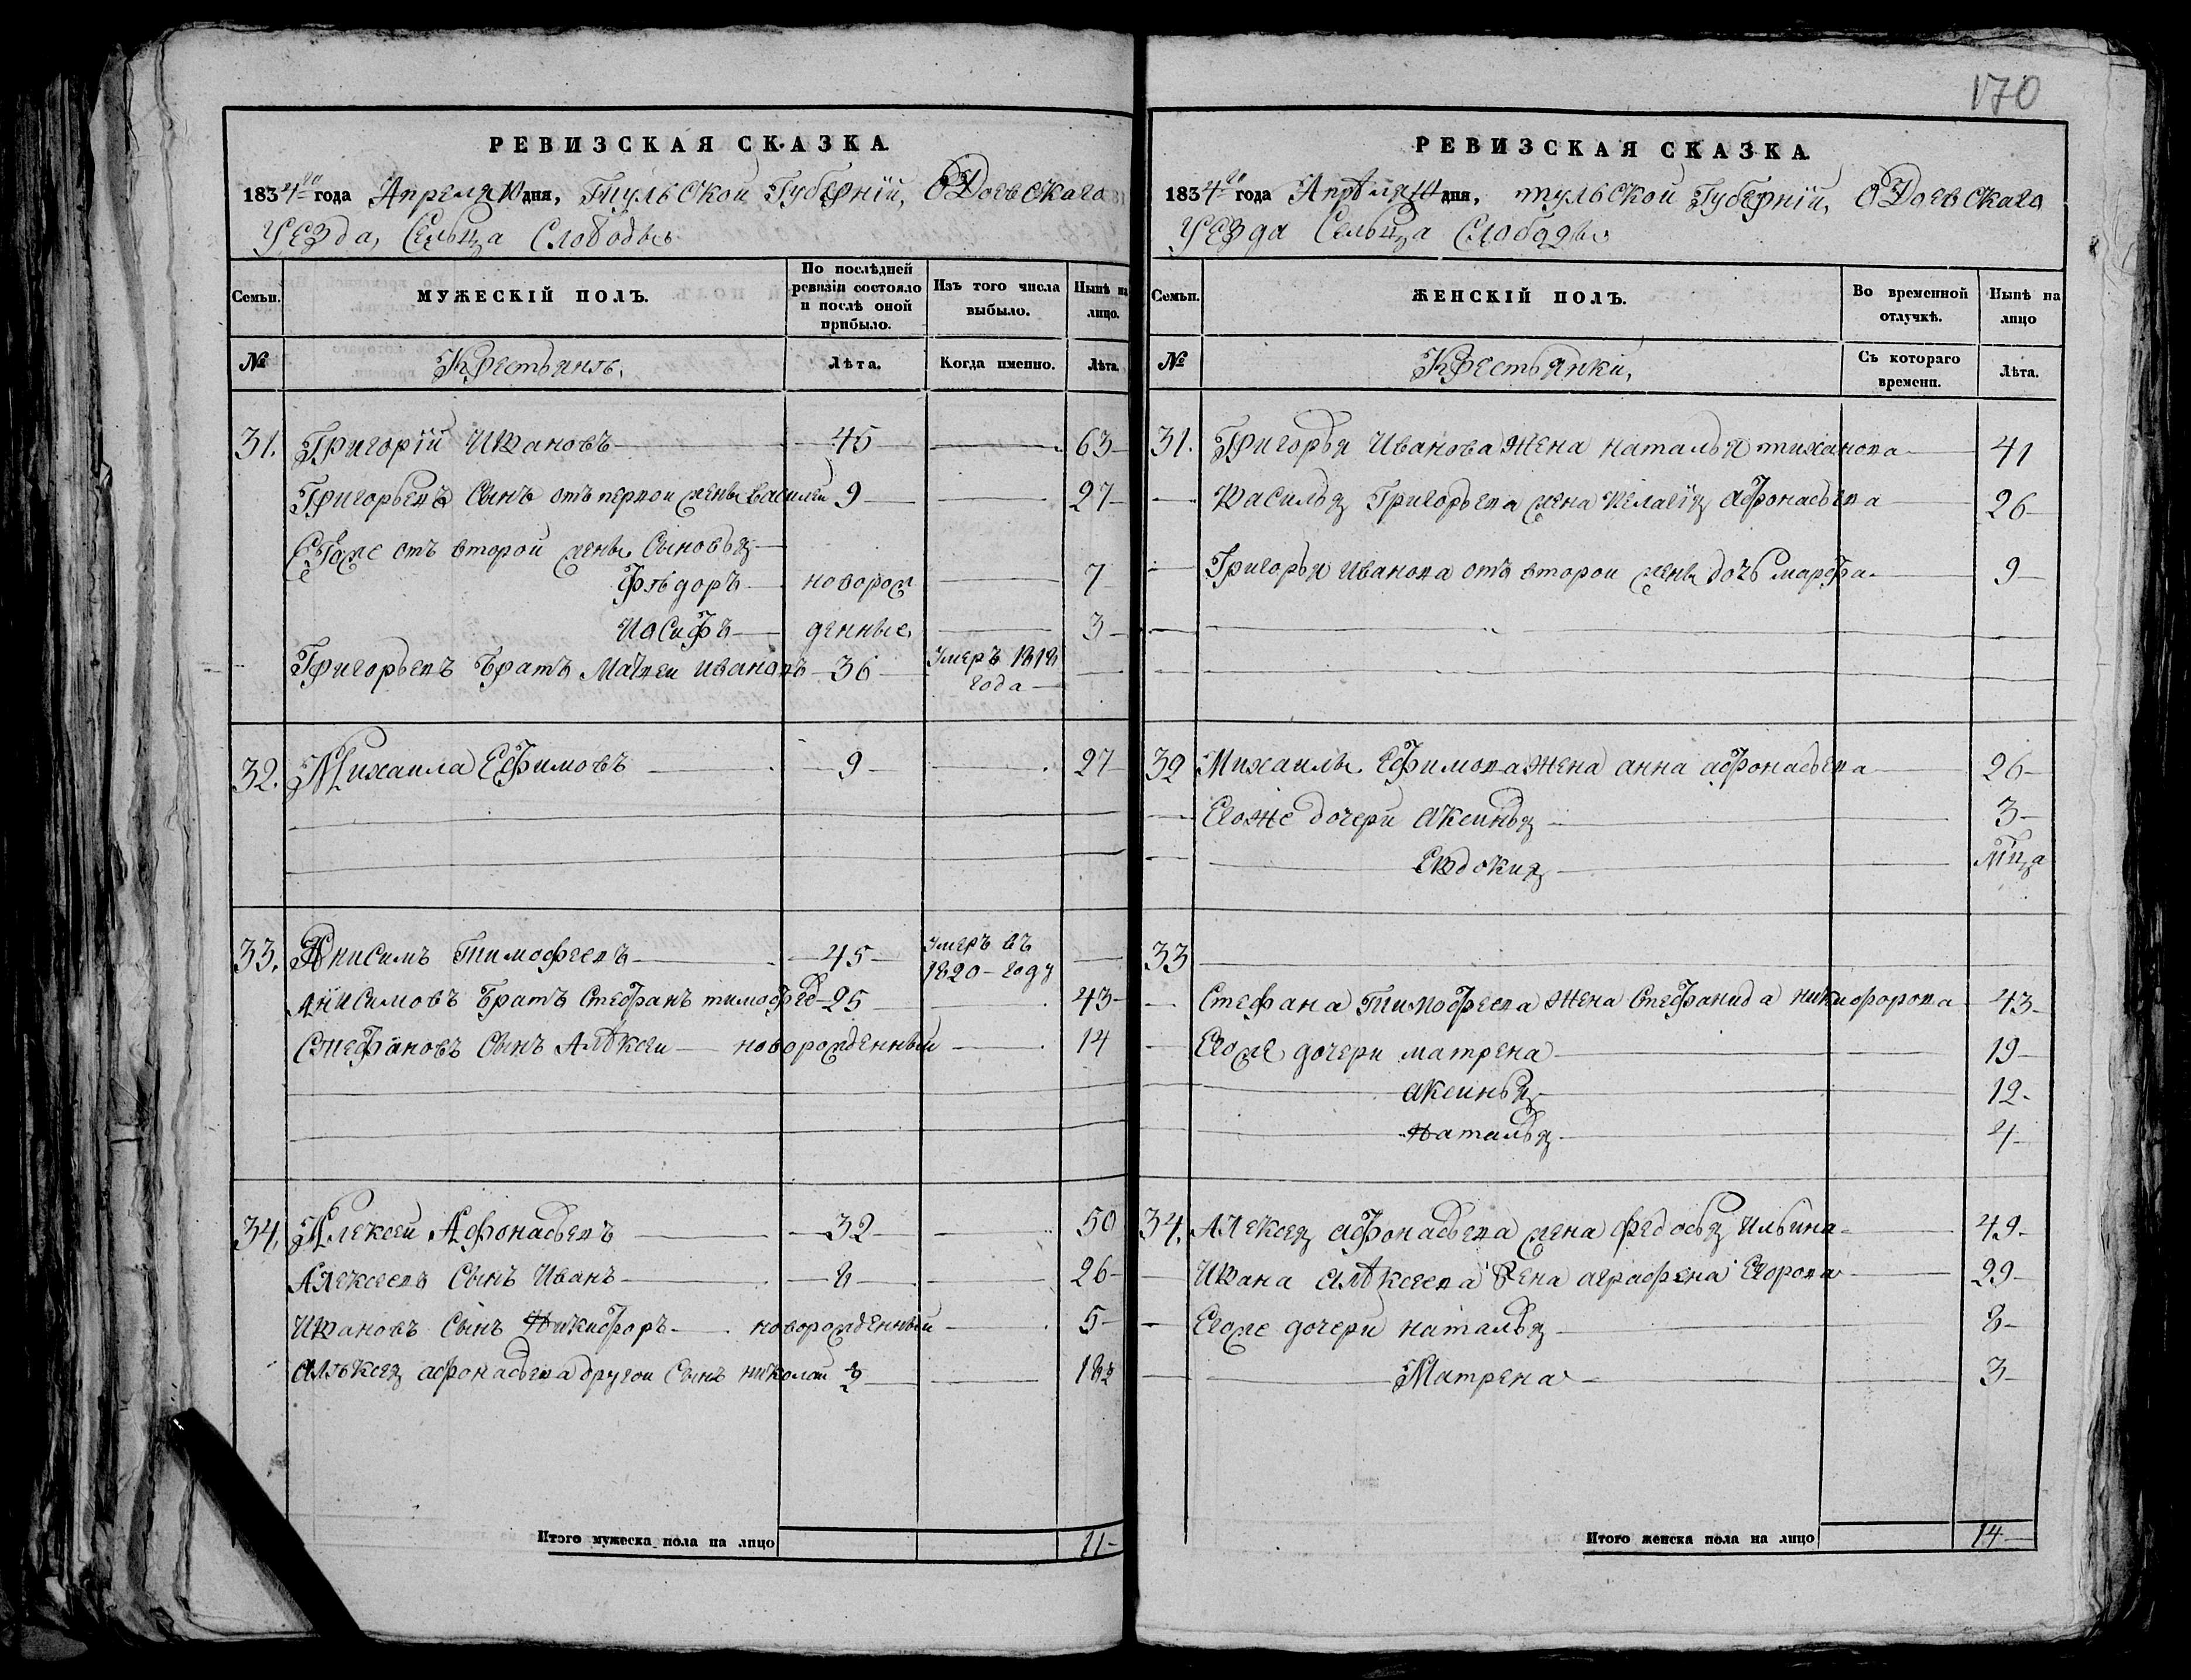 170
РЕВИЗСКАЯ СКАЗКА.
1834го года Апреля 10 дня, Тульской Губернїи, Одоевскаго
Уезда, Сельца Слободы
Семьи.
МУЖЕСКІЙ ПОЛЪ.
По послѣдней ревизіи состояло и послѣ оной прибыло.
Изъ того числа выбыло.
Нынѣ на лицо.
№
Крестьянъ,
Лѣта.
Когда именно.
Лѣта.
31. Григорїй Ивановъ 45 63
Григорьевъ Сынъ отъ первои жены Василеи 9 27
Его же отъ второй жены Сыновья
Фѣдоръ новорож 7
Иосифъ денные 3
Григорьевъ братъ Матвеи Ивановъ 36 Умеръ 1818 года
32. Михаила Ефимовъ 9 27
33. Анисимъ Тимофеевъ 45 Умеръ въ 1820 году
Анисимовъ братъ Стефанъ тимофее 25 43
Стефановъ Сынъ Алѣксеи новорожденный 14
34. Алексеи Афонасьевъ 32 50
Алексеевъ Сынъ Иванъ 8 26
Ивановъ Сынъ Никифоръ новорожденный 5
Алѣксея афонасьева другои Сынъ николаи
Итого мужеска пола на лицо 11
РЕВИЗСКАЯ СКАЗКА.
1834го года Апрѣля 10 дня, тульской Губернїи, Одоевскаго
Уезда Сельца Слободы
Семьи.
ЖЕНСКІЙ ПОЛЪ.
Во временной отлучкѣ.
Нынѣ на лицо
№
Крестьянки,
Съ котораго времени.
Лѣта.
31. Григорья Иванова жена наталья тиханова 41
Василья Григорьева жена Пелагїя Афонасьева 26
Григорья Иванова отъ второи жены дочь марфа 9
32 Михаилы Ефимова жена анна афонасьева 26
Егоже дочери Аксинья 3
Евдокия Мца
33
Стефана Тимофеева жена Стефанида никифорова 43
Егоже дочери матрена 19
аксинья 12
Наталья 4
34. Алексея афонасьева жена федосья Ильина 49
Ивана Алѣксеева Жена аграфена Егорова 29
Егоже дочери наталья 8
Матрена 3
Итого женска пола на лицо 14